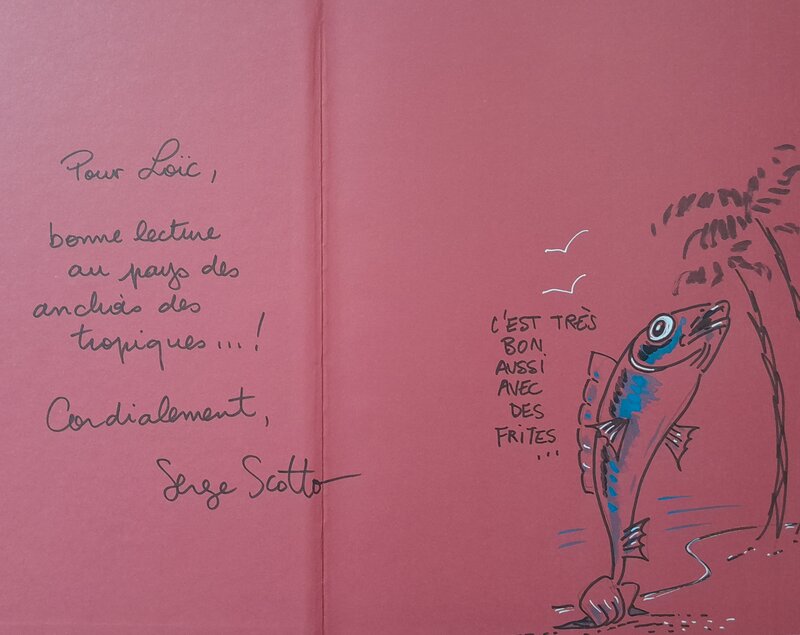 Pour Loïc,
bonne lecture
au pays des
anchois des
tropiques...!
Cordialement,
Serge Scotto
C'EST TRÈS
BON
AUSSI
AVEC
DES
FRITES
...